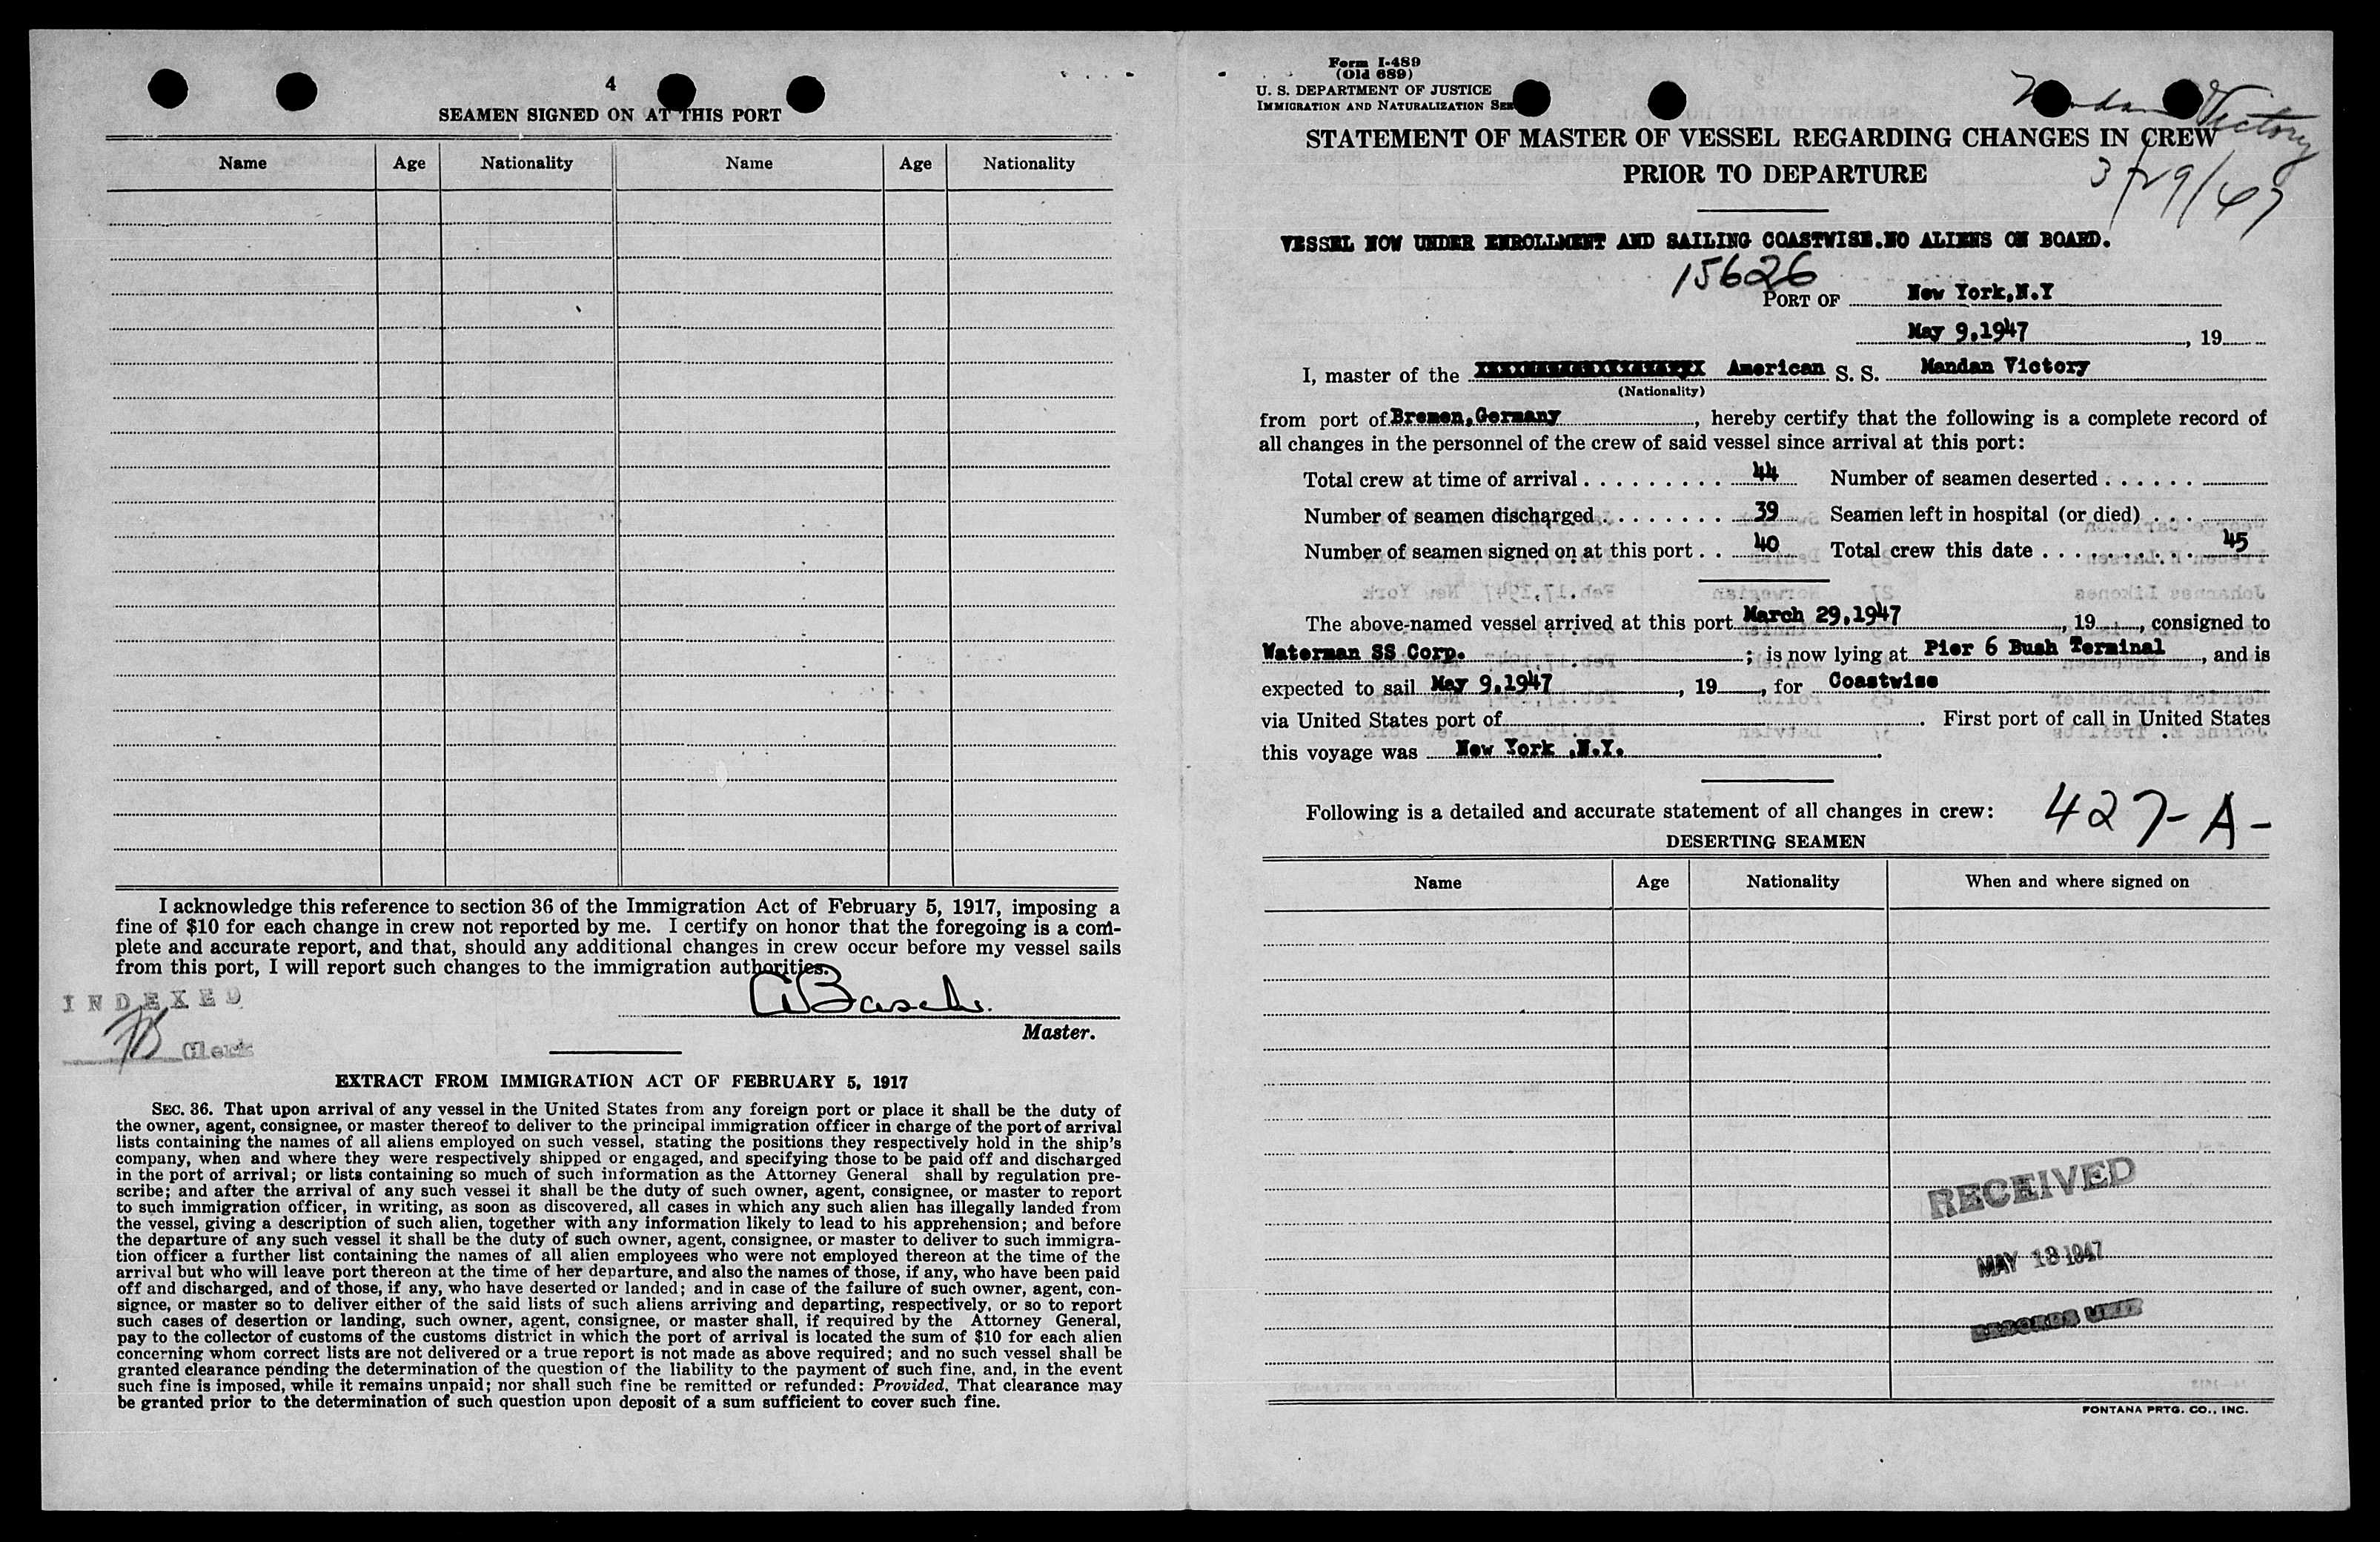 4
SEAMEN SIGNED ON AT THIS PORT
Name Age Nationality Name Age Nationality
I acknowledge this reference to section 36 of the Immigration Act of February 5, 1917, imposing a
fine of $10 for each change in crew not reported by me. I certify on honor that the foregoing is a com-
plete and accurate report, and that, should any additional changes in crew occur before my vessel sails
from this port, I will report such changes to the immigration authorities.
INDEXED
Clerk
Master.
EXTRACT FROM IMMIGRATION ACT OF FEBRUARY 5, 1917
SEC. 36. That upon arrival of any vessel in the United States from any foreign port or place it shall be the duty of
the owner, agent, consignee, or master thereof to deliver to the principal immigration officer in charge of the port of arrival
lists containing the names of all aliens employed on such vessel, stating the positions they respectively hold in the ship's
company, when and where they were respectively shipped or engaged, and specifying those to be paid off and discharged
in the port of arrival; or lists containing so much of such information as the Attorney General shall by regulation pre-
scribe; and after the arrival of any such vessel it shall be the duty of such owner, agent, consignee, or master to report
to such immigration officer, in writing, as soon as discovered, all cases in which any such alien has illegally landed from
the vessel, giving a description of such alien, together with any information likely to lead to his apprehension; and before
the departure of any such vessel it shall be the duty of such owner, agent, consignee, or master to deliver to such immigra-
tion officer a further list containing the names of all alien employees who were not employed thereon at the time of the
arrival but who will leave port thereon at the time of her departure, and also the names of those, if any, who have been paid
off and discharged, and of those, if any, who have deserted or landed; and in case of the failure of such owner, agent, con-
signee, or master so to deliver either of the said lists of such aliens arriving and departing, respectively, or so to report
such cases of desertion or landing, such owner, agent, consignee, or master shall, if required by the Attorney General,
pay to the collector of customs of the customs district in which the port of arrival is located the sum of $10 for each alien
concerning whom correct lists are not delivered or a true report is not made as above required; and no such vessel shall be
granted clearance pending the determination of the question of the liability to the payment of such fine, and, in the event
such fine is imposed, while it remains unpaid; nor shall such fine be remitted or refunded: Provided, That clearance may
be granted prior to the determination of such question upon deposit of a sum sufficient to cover such fine.
Form I-489
(Old 689)
U. S. DEPARTMENT OF JUSTICE
IMMIGRATION AND NATURALIZATION SER
Victory
3/29/47
STATEMENT OF MASTER OF VESSEL REGARDING CHANGES IN CREW
PRIOR TO DEPARTURE
VESSEL NOW UNDER ENROLLMENT AND SAILING COASTWISE.NO ALIENS ON BOARD.
15626
PORT OF New York,N.Y
May 9,1947, 19
I, master of the American S. S. Mandan Victory
(Nationality)
from port of Bremen,Germany, hereby certify that the following is a complete record of
all changes in the personnel of the crew of said vessel since arrival at this port:
Total crew at time of arrival . . . . . . . . . 44 Number of seamen deserted . . . . . .
Number of seamen discharged . . . . . . . 39 Seamen left in hospital (or died) . . .
Number of seamen signed on at this port . . 40 Total crew this date . . . . . . . . . 45
The above-named vessel arrived at this port March 29,1947, 19, consigned to
Waterman SS Corp. ; is now lying at Pier 6 Bush Terminal, and is
expected to sail May 9,1947, 19, for Coastwise
via United States port of . First port of call in United States
this voyage was New York ,N.Y. .
Following is a detailed and accurate statement of all changes in crew: 427-A-
DESERTING SEAMEN
Name Age Nationality When and where signed on
RECEIVED
MAY 13 1947
RECORDS UNIT
FONTANA PRTG. CO., INC.